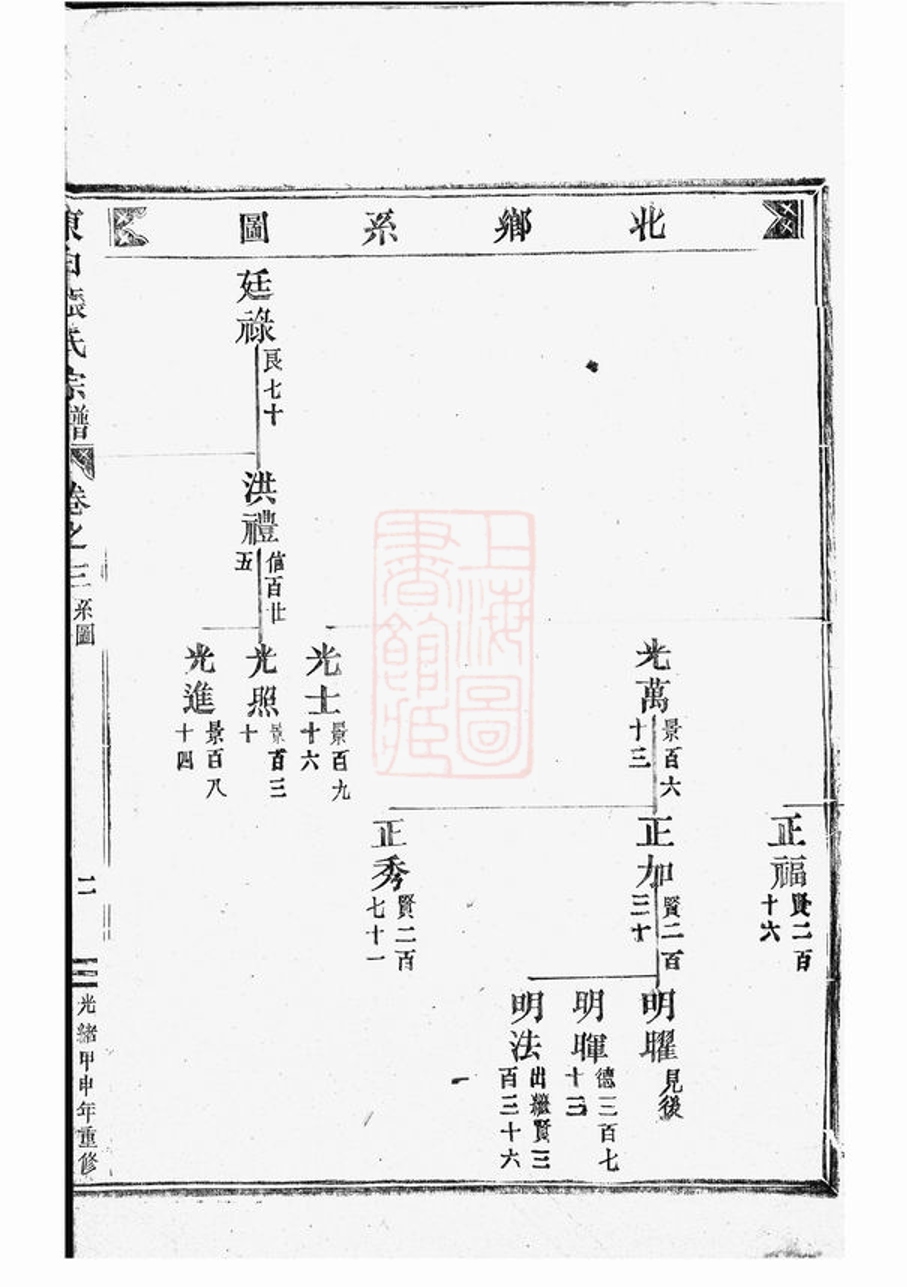 北鄉系圖
正福
賢二百
十六
光萬
景百六
十三
正加
賢二百
三十
明曜
見後
明暉
德三百七
十三
明法
出繼賢三
百三十六
正秀
賢二百
七十一
光士
景百九
十六
廷祿
良七十
洪禮
信百廿
五
光照
景百三
十
光進
景百八
十四
張氏宗譜
卷之三
系圖
二
光緒甲申年重修
上海圖
書館藏